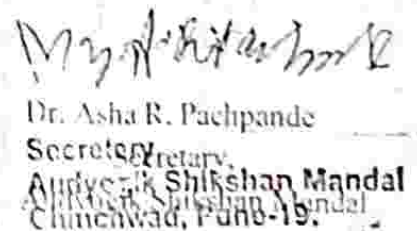 Dr. Asha R. Pachpande
Secretary
Secretary,
Audyogik Shikshan Mandal
Shikshan Mandal
Chinchwad, Pune-19.